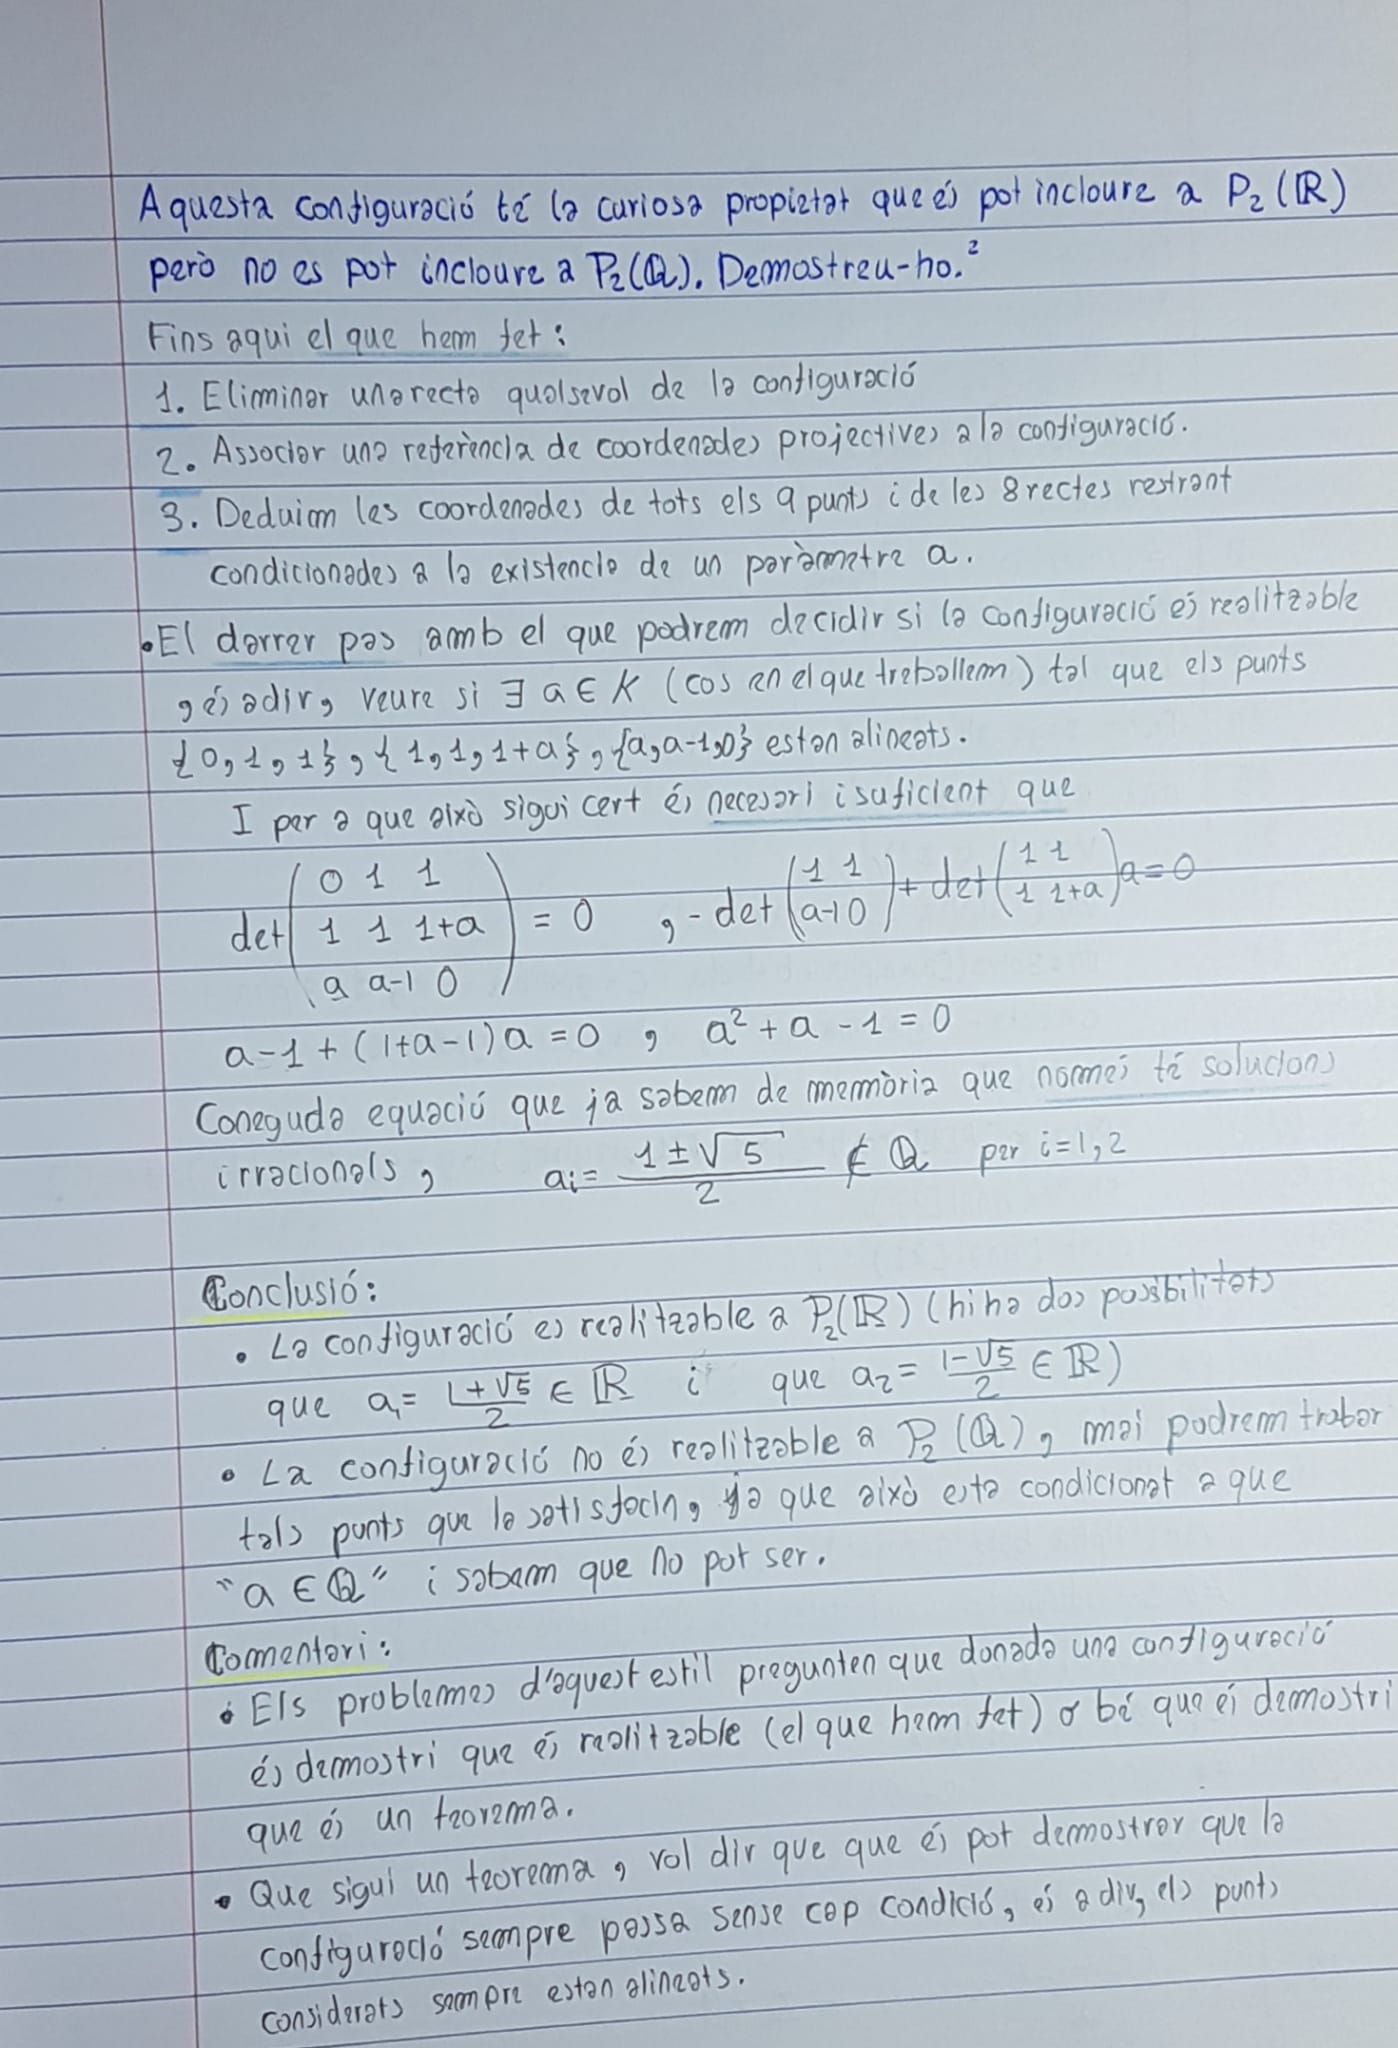 Aquesta configuració té la curiosa propietat que és pot incloure a P₂(ℝ)
però no es pot incloure a P₂(ℚ). Demostreu-ho.²
Fins aqui el que hem fet:
1. Eliminar una recta qualsevol de la configuració
2. Associar una referència de coordenades projectives a la configuració.
3. Deduim les coordenades de tots els 9 punts i de les 8 rectes restrant
condicionades a la existencia de un paràmetre a.
• El darrer pas amb el que podrem decidir si la configuració és realitzable
, és a dir, veure si ∃ a ∈ K (cos en el que treballem) tal que els punts
{0,1,1}, {1,1,1+a}, {a,a-1,0} estan alineats.
I per a que això sigui cert és necesari i suficient que
det(0 1 1 ; 1 1 1+a ; a a-1 0) = 0 , -det(1 1 ; a-1 0) + det(1 1 ; 1 1+a)a = 0
a-1 + (1+a-1)a = 0 , a² + a - 1 = 0
Coneguda equació que ja sabem de memòria que només té solucions
irracionals, aᵢ = (1±√5)/2 ∉ ℚ per i=1,2
Conclusió:
• La configuració es realitzable a P₂(ℝ) (hi ha dos possibilitats
que a₁ = (1+√5)/2 ∈ ℝ i que a₂ = (1-√5)/2 ∈ ℝ)
• La configuració no és realitzable a P₂(ℚ), mai podrem trobar
tals punts que la satisfacin, ja que això esta condicionat a que
"a ∈ ℚ" i sabem que no pot ser.
Comentari:
• Els problemes d'aquest estil pregunten que donada una configuració
és demostri que és realitzable (el que hem fet) o bé que és demostri
que és un teorema.
• Que sigui un teorema, vol dir que que és pot demostrar que la
configuració sempre passa sense cap condició, és a dir, els punts
considerats sempre estan alineats.